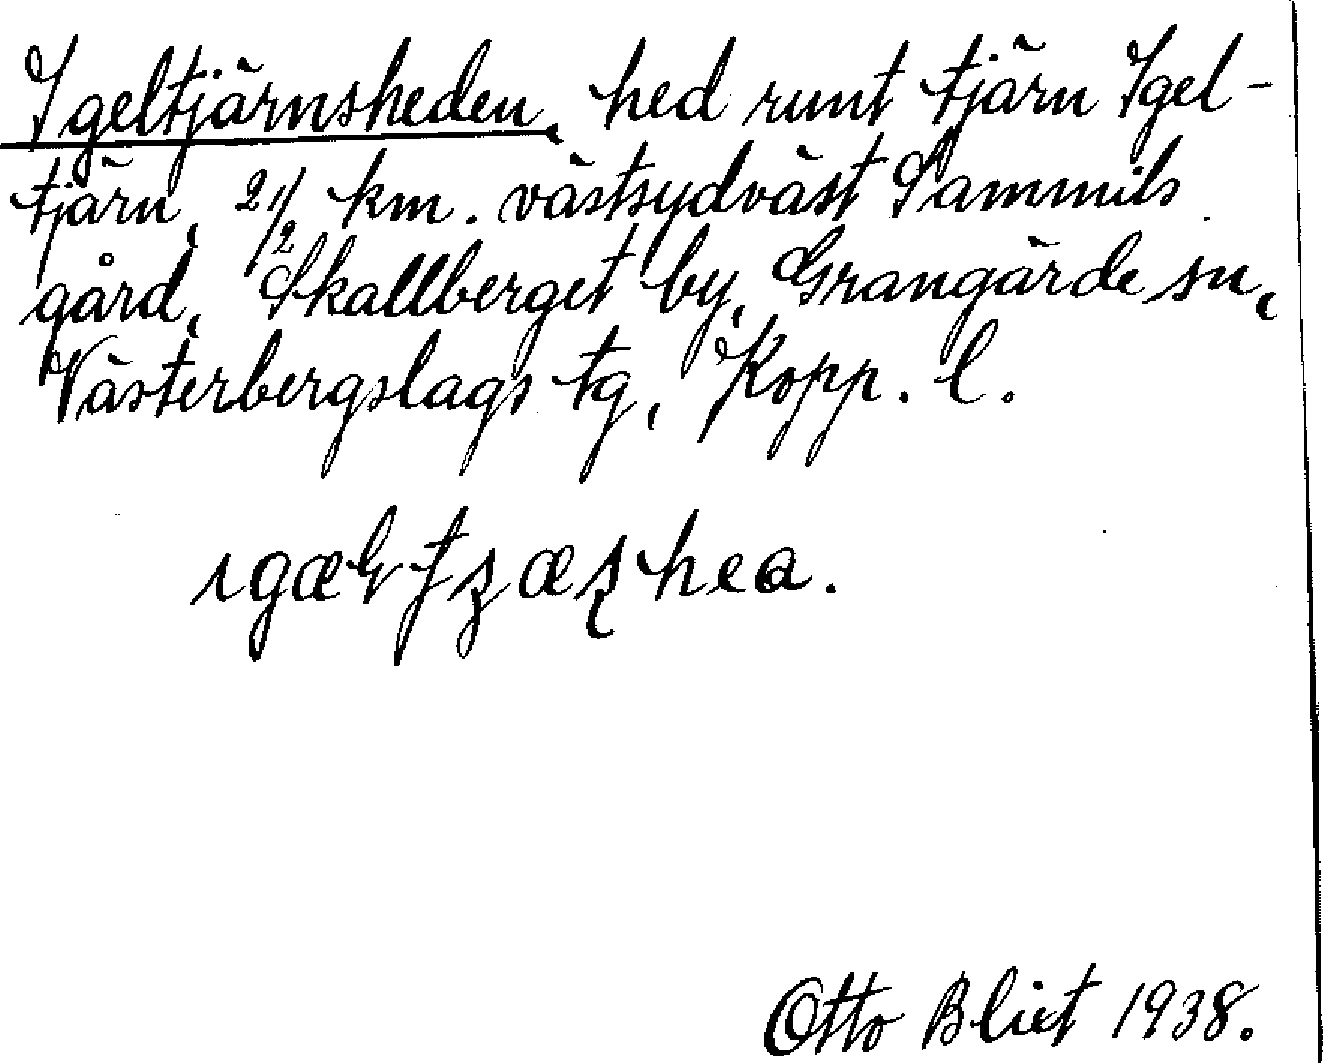 Igeltjärnsheden, hed runt tjärn Igel-
tjärn, 2 1/2 km. västsydväst Sammils
gård, Skallberget by, Grangärde sn,
Västerbergslags tg, Kopp. l.
Otto Bliet 1938.